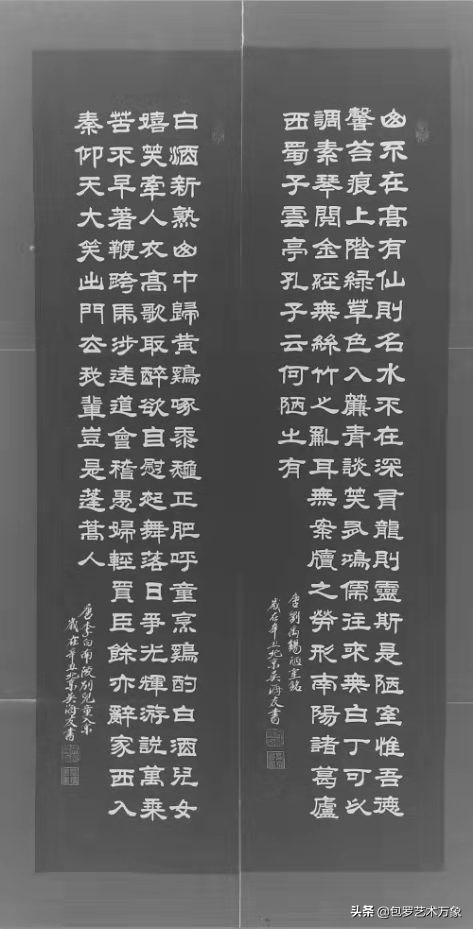 山不在高有仙則名水不在深有龍則靈斯是陋室惟吾德
馨苔痕上階緑草色入簾青談笑有鴻儒往來無白丁可以
調素琴閱金經無絲竹之亂耳無案牘之勞形南陽諸葛廬
西蜀子雲亭孔子云何陋之有
唐劉禹錫陋室銘
歲在辛丑北京吳海友書
白酒新熟山中歸黃鷄啄黍穐正肥呼童烹鷄酌白酒兒女
嬉笑牽人衣高歌取醉欲自慰起舞落日爭光輝游説萬乘
苦不早著鞭跨馬涉遠道會稽愚婦輕買臣餘亦辭家西入
秦仰天大笑出門去我輩豈是蓬蒿人
唐李白南陵別兒童入京
歲在辛丑北京吳海友書
头条 @包罗艺术万象